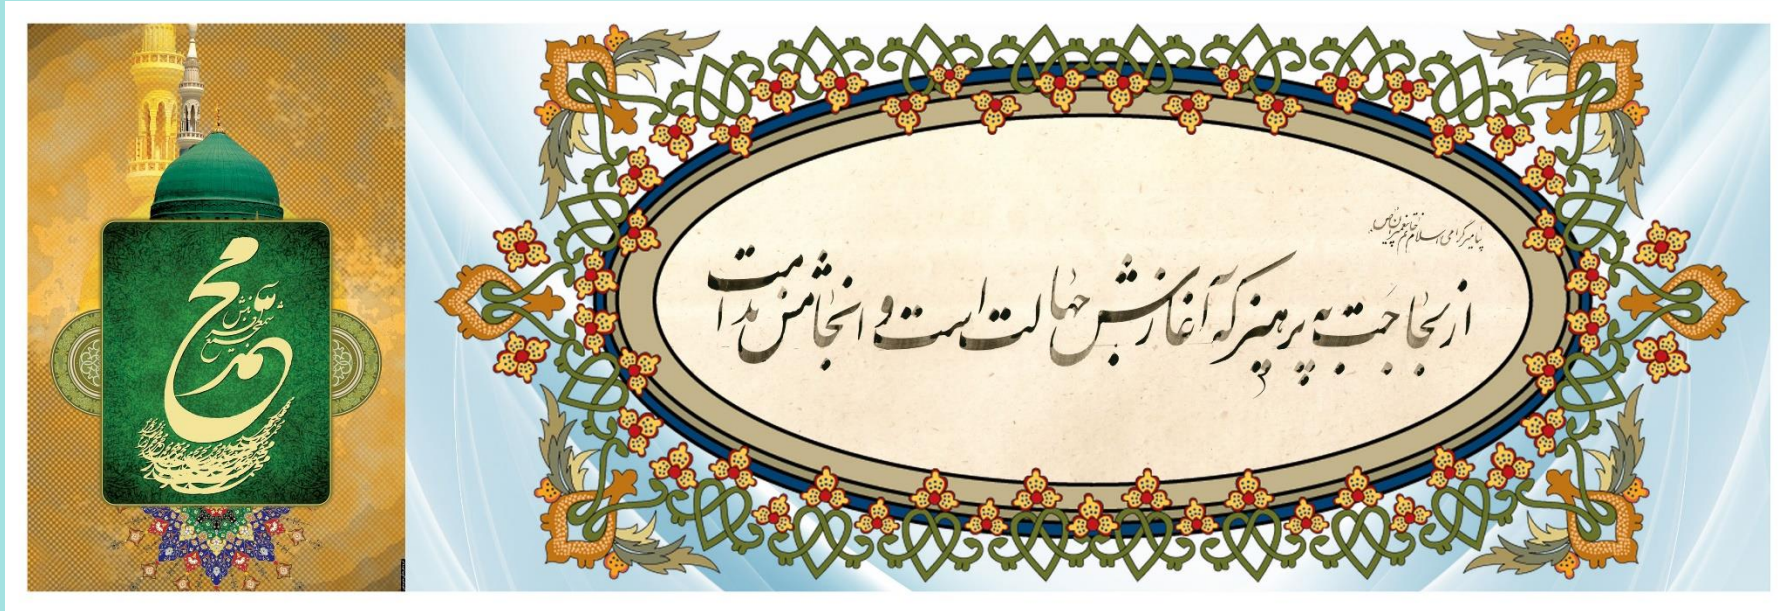 محمد
پیامبر گرامی اسلام خاتم پیغمبران ص
از لجاجت به پرهیز که آغازش جهالت است و انجامش ندامت